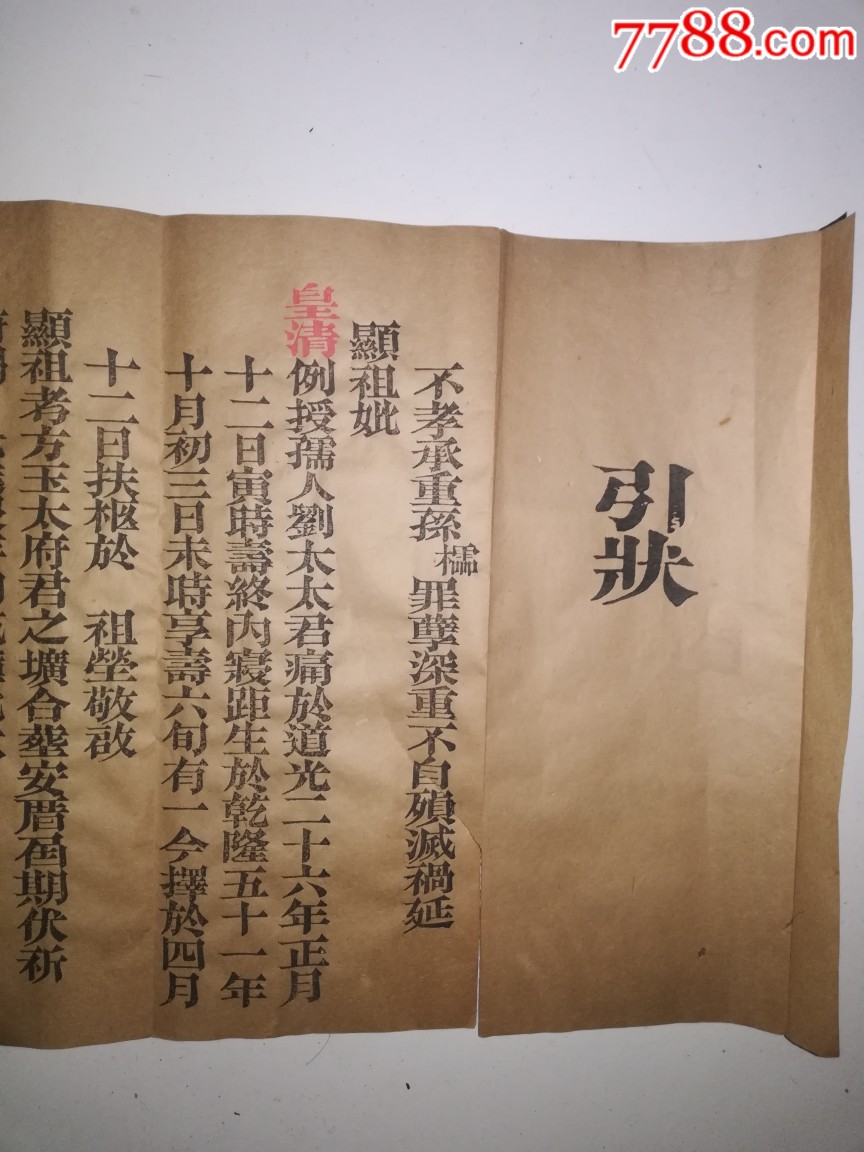 7788.com
引狀
不孝承重孫檽罪孽深重不自殞滅禍延
顯祖妣
皇清例授孺人劉太太君痛於道光二十六年正月
十二日寅時壽終內寢距生於乾隆五十一年
十月初三日未時享壽六旬有一今擇於四月
十二日扶柩於 祖塋敬啟
顯祖考方玉太府君之壙合塟安厝屆期伏祈